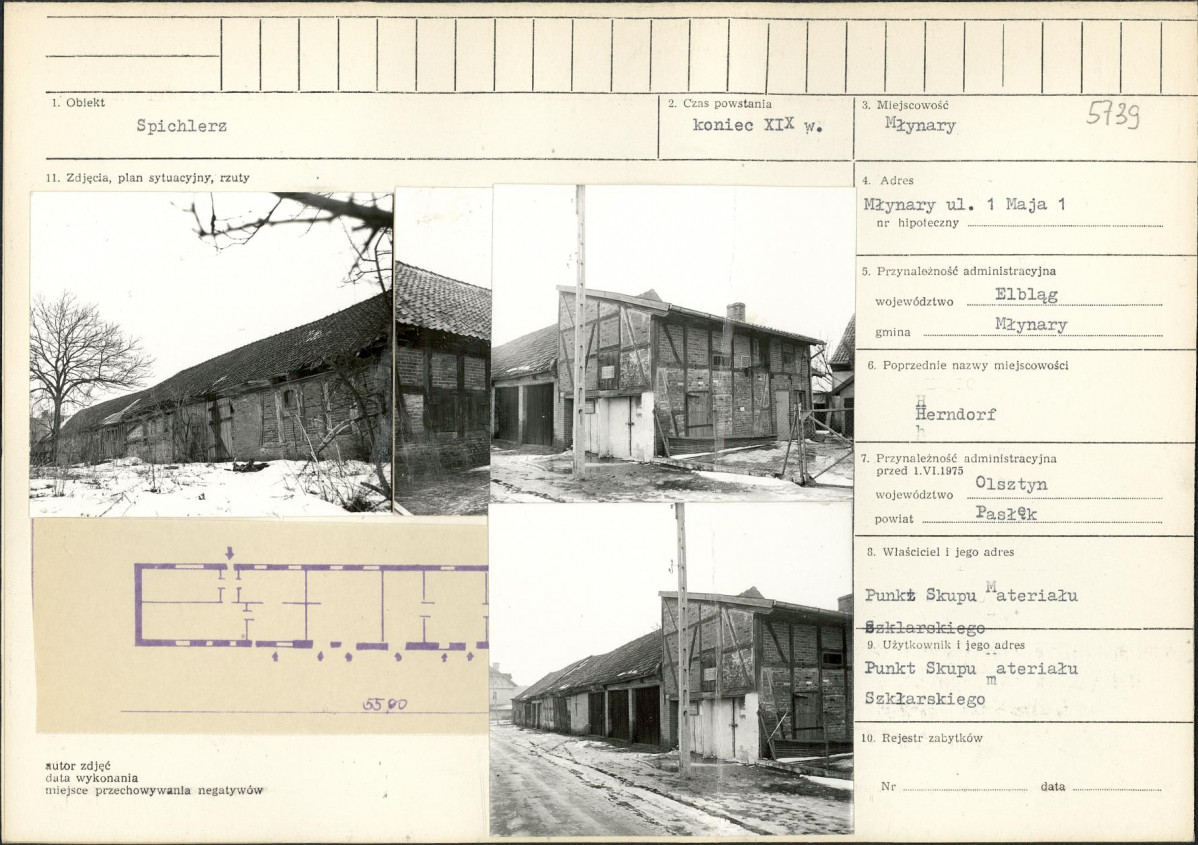 1. Obiekt
Spichlerz
2. Czas powstania
koniec XIX w.
3. Miejscowość
Młynary
5739
11. Zdjęcia, plan sytuacyjny, rzuty
4. Adres
Młynary ul. 1 Maja 1
nr hipoteczny
5. Przynależność administracyjna
województwo Elbląg
gmina Młynary
6. Poprzednie nazwy miejscowości
Herndorf
7. Przynależność administracyjna
przed 1.VI.1975
województwo Olsztyn
powiat Pasłęk
8. Właściciel i jego adres
Punkt Skupu Materiału
Szklarskiego
9. Użytkownik i jego adres
Punkt Skupu materiału
Szkłarskiego
10. Rejestr zabytków
Nr data
55,00
autor zdjęć
data wykonania
miejsce przechowywania negatywów